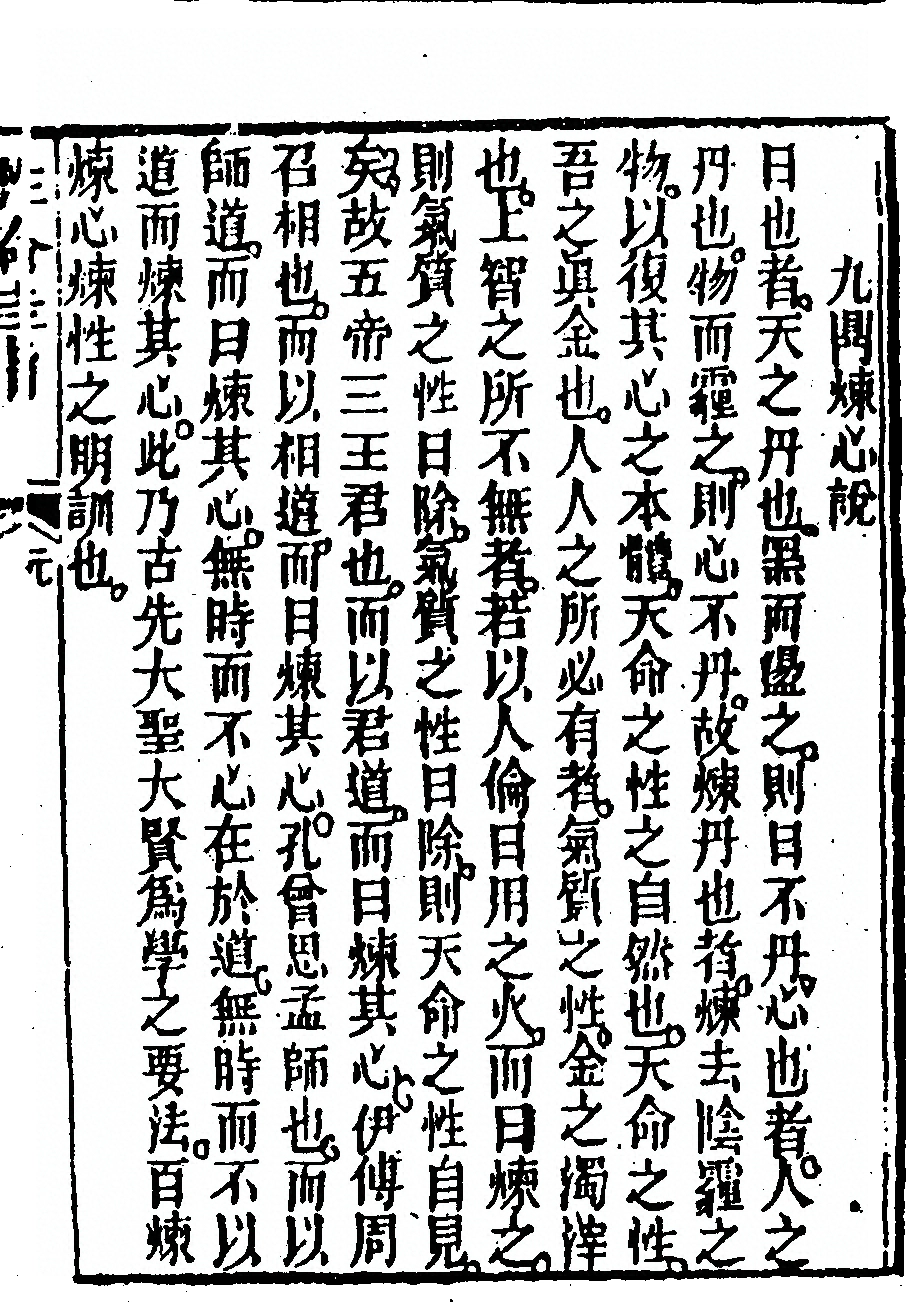 九鼎煉心說
日也者。天之丹也。黑而盪之。則日不丹。心也者。人之
丹也。物而霾之。則心不丹。故煉丹也者。煉去陰霾之
物。以復其心之本體。天命之性之自然也。天命之性。
吾之眞金也。人人之所必有者。氣質之性。金之濁滓
也。上智之所不無者。若以人倫日用之火。而日煉之。
則氣質之性日除。氣質之性日除。則天命之性自見。
矣。故五帝三王君也。而以君道。而日煉其心。伊傅周
召相也。而以相道。而日煉其心。孔曾思孟師也。而以
師道。而日煉其心。無時而不心在於道。無時而不以
道而煉其心。此乃古先大聖大賢爲學之要法。百煉
煉心煉性之明訓也。
元